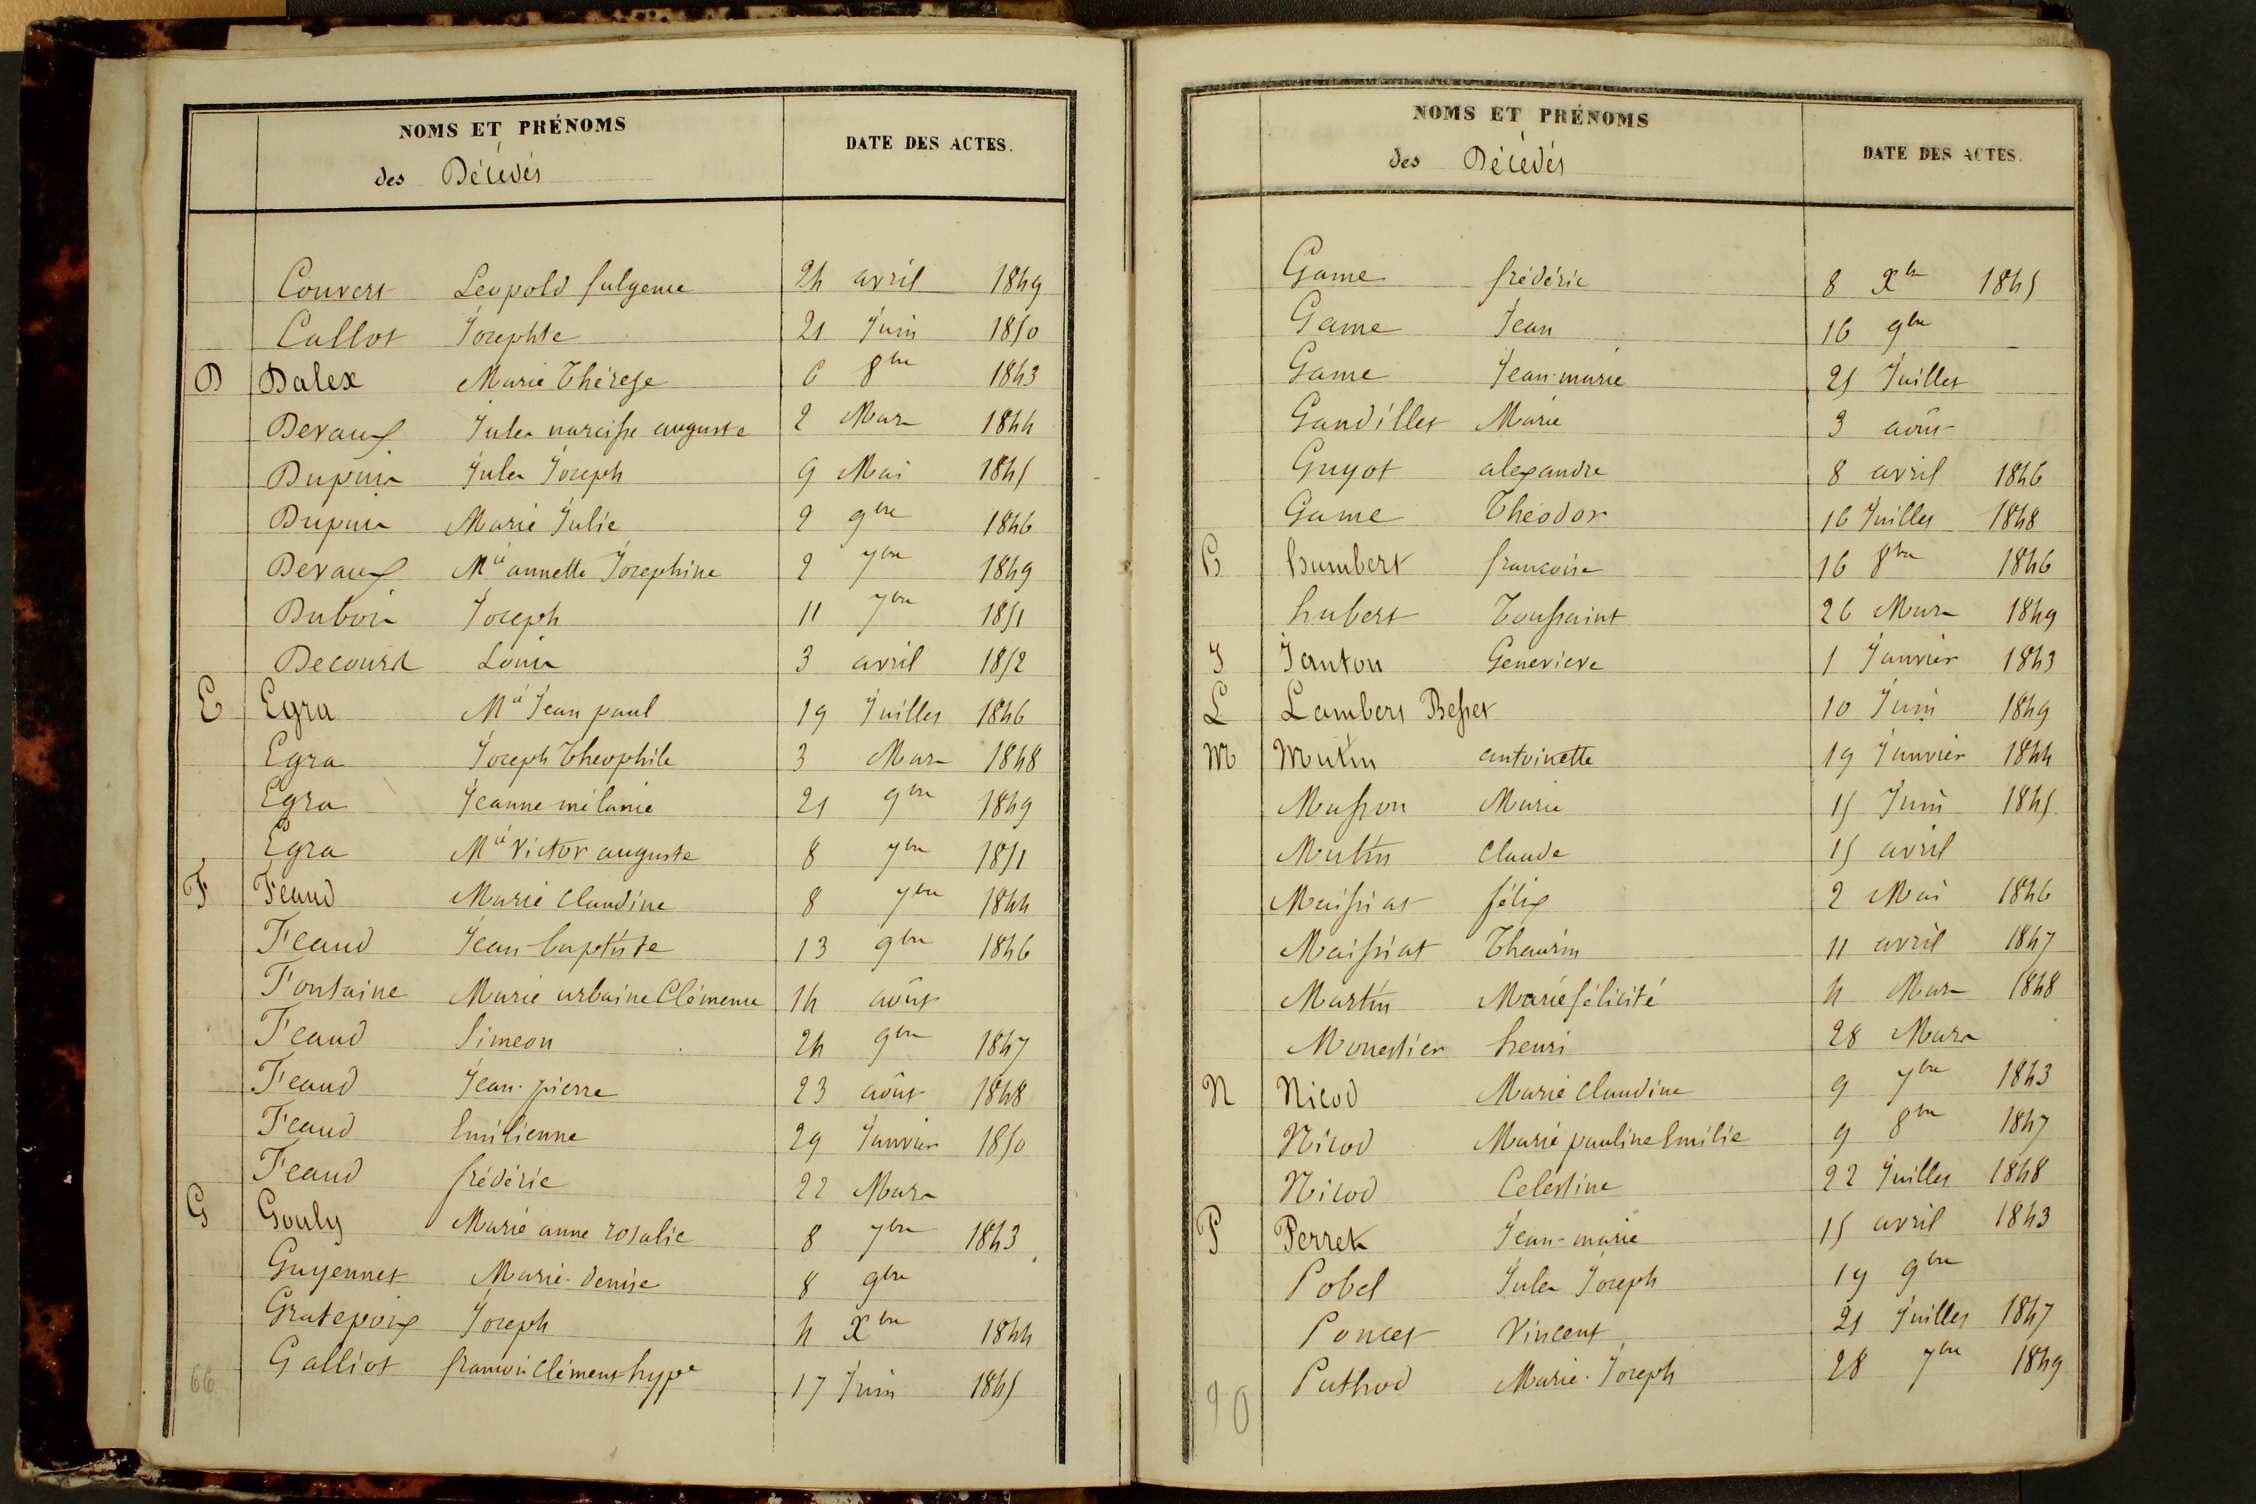 NOMS ET PRÉNOMS
des Décédés
DATE DES ACTES.
Convert Leopold fulgence 24 avril 1849
Callot Josephte 21 Juin 1850
D Dalex Marie Thérese 6 8bre 1843
Devaux Jules narcisse auguste 2 Mars 1844
Dupuis Jules Joseph 9 Mai 1845
Dupuis Marie Julie 2 9bre 1846
Devaux Mie annette Josephine 2 7bre 1849
Dubois Joseph 11 7bre 1851
Decourd Louis 3 avril 1852
E Egra Mie Jean paul 19 Juillet 1846
Egra Joseph Theophile 3 Mars 1848
Egra Jeanne mélanie 21 9bre 1849
Egra Mie Victor auguste 8 7bre 1851
F Feaud Marie Claudine 8 7bre 1844
Feaud Jean-baptiste 13 9bre 1846
Fontaine Marie urbaine Clémence 14 août
Feaud Simeon 24 9bre 1847
Feaud Jean-pierre 23 août 1848
Feaud Emilienne 29 Janvier 1850
Feaud frédéric 22 Mars
G Gouly Marie anne rosalie 8 7bre 1843
Guyennet Marie-denise 8 9bre
Gratepoix Joseph 4 Xbre 1844
Galliot francois Clément hypte 17 Juin 1845
66
NOMS ET PRÉNOMS
des Décédés
DATE DES ACTES.
Game frédéric 8 Xbre 1845
Game Jean 16 9bre
Game Jean-marie 25 Juillet
Gandillet Marie 3 août
Guyot alexandre 8 avril 1846
Game Théodor 16 Juillet 1848
H humbert francoise 16 8bre 1846
hubert Toussaint 26 Mars 1849
J Janton Genevieve 1 Janvier 1843
L Lambert Besset 10 Juin 1849
M Mutin antoinette 19 Janvier 1844
Masson Marie 15 Juin 1845
Mutin Claude 15 avril
Maissiat félix 2 Mai 1846
Maissiat Thaurin 11 avril 1847
Martin Marie félicité 4 Mars 1848
Monestier henri 28 Mars
N Nicod Marie Claudine 9 7bre 1843
Nicod Marie pauline Emilie 9 8bre 1847
Nicod Celestine 22 Juillet 1848
P Perret Jean-marie 15 avril 1843
Pobel Jules Joseph 19 9bre
Poncet Vincent 21 Juillet 1847
Puthod Marie-Joseph 28 7bre 1849
90